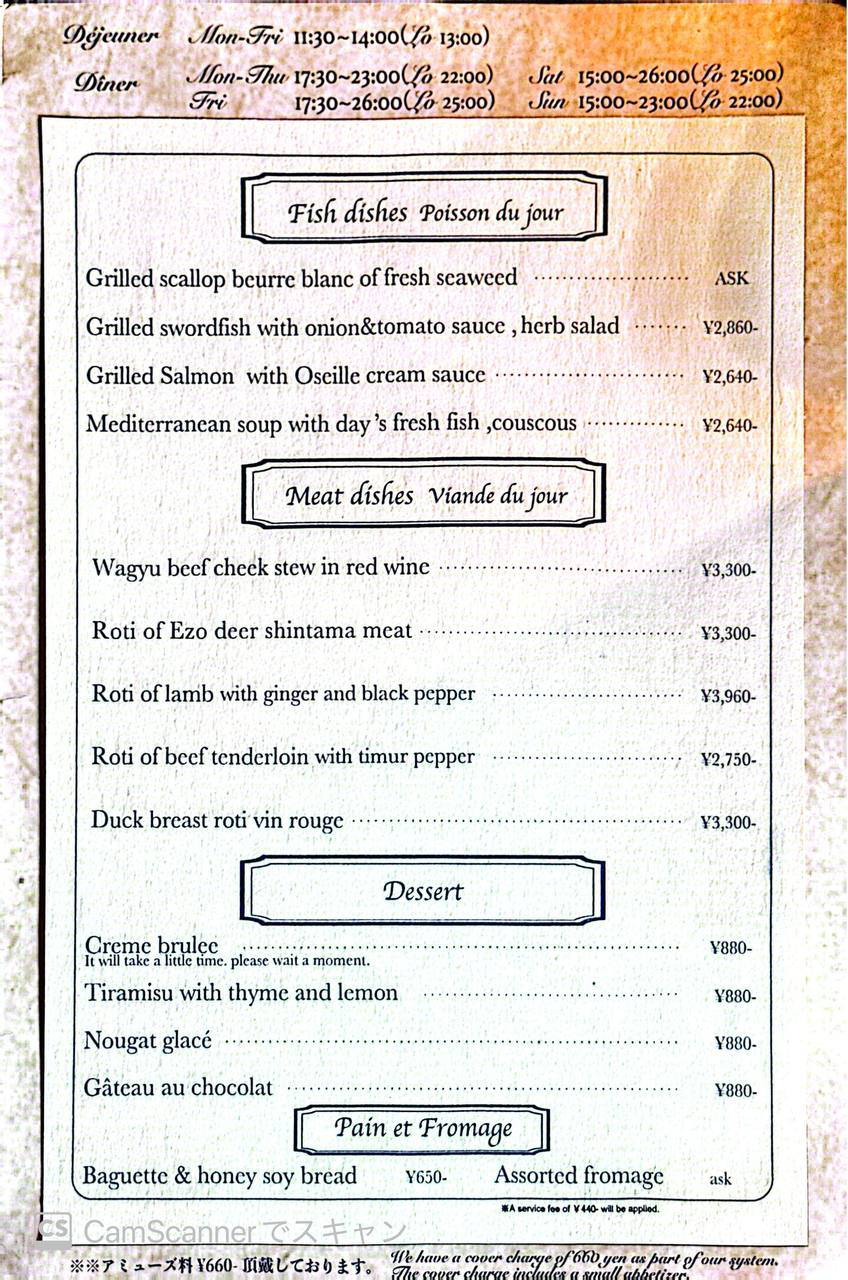 Déjeuner Mon-Fri 11:30~14:00(Lo 13:00)
Dîner Mon-Thu 17:30~23:00(Lo 22:00) Sat 15:00~26:00(Lo 25:00)
Fri 17:30~26:00(Lo 25:00) Sun 15:00~23:00(Lo 22:00)
Fish dishes Poisson du jour
Grilled scallop beurre blanc of fresh seaweed ASK
Grilled swordfish with onion&tomato sauce , herb salad ¥2,860-
Grilled Salmon with Oseille cream sauce ¥2,640-
Mediterranean soup with day's fresh fish ,couscous ¥2,640-
Meat dishes Viande du jour
Wagyu beef cheek stew in red wine ¥3,300-
Roti of Ezo deer shintama meat ¥3,300-
Roti of lamb with ginger and black pepper ¥3,960-
Roti of beef tenderloin with timur pepper ¥2,750-
Duck breast roti vin rouge ¥3,300-
Dessert
Creme brulee ¥880-
It will take a little time. please wait a moment.
Tiramisu with thyme and lemon ¥880-
Nougat glacé ¥880-
Gâteau au chocolat ¥880-
Pain et Fromage
Baguette & honey soy bread ¥650- Assorted fromage ask
※A service fee of ¥440- will be applied.
CS CamScannerでスキャン
※※アミューズ料¥660- 頂戴しております。 We have a cover charge of 660 yen as part of our system.
The cover charge includes a small appetizer.